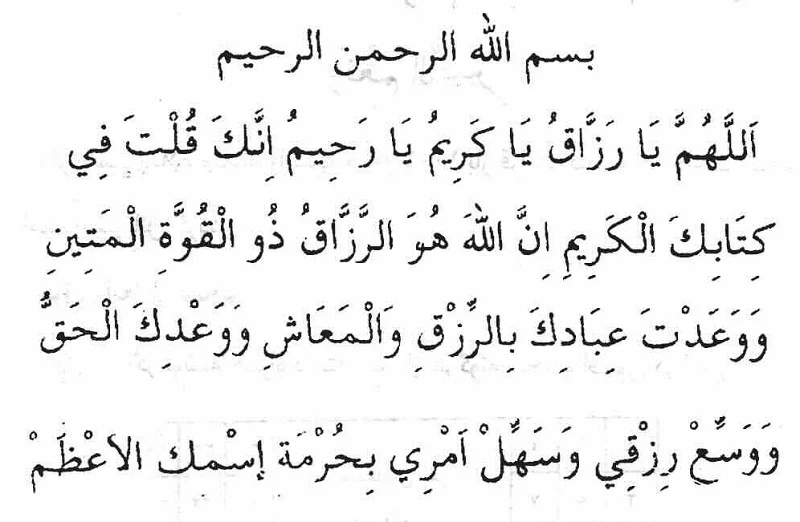 بسم الله الرحمن الرحيم
اَللَّهُمَّ يَا رَزَّاقُ يَا كَرِيمُ يَا رَحِيمُ اِنَّكَ قُلْتَ فِي
كِتَابِكَ الْكَرِيمِ اِنَّ اللهَ هُوَ الرَّزَّاقُ ذُو الْقُوَّةِ الْمَتِينِ
وَوَعَدْتَ عِبَادِكَ بِالرِّزْقِ وَالْمَعَاشِ وَوَعْدِكَ الْحَقُّ
وَوَسِّعْ رِزْقِي وَسَهِّلْ اَمْرِي بِحُرْمَة إسْمك الاعْظَمْ